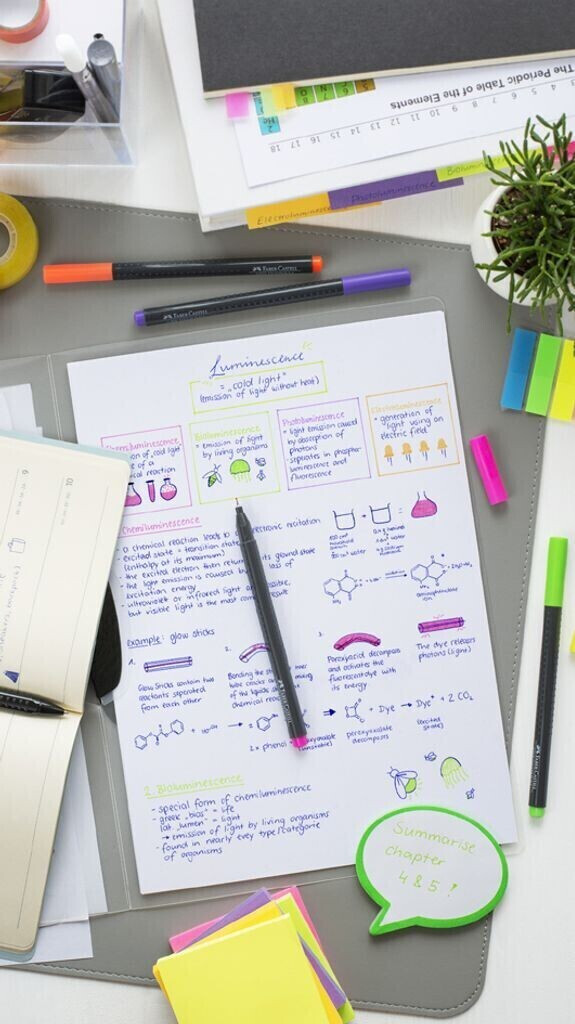 The Periodic Table of the Elements
18 17 16 15 14 13 12 11 10 9 8 7 6 5 4 3
Bioluminescence
Photoluminescence
Electroluminescence
FABER-CASTELL
FABER-CASTELL
Luminescence
= "cold light"
(emission of light without heat)
Chemiluminescence
of cold light
of a
reaction
Bioluminescence
= emission of light
by living
organisms
Photoluminescence
= light emission caused
by absorption of
photons
- separates in phosphor-
luminescence and
fluorescence
Electroluminescence
= generation of
light using an
electric field
Chemiluminescence
- a chemical reaction leads to electronic excitation
- excited state = transition state
(enthalpy at its maximum)
- the excited electron then its ground state
- the light emission is caused loss of
excitation energy
- ultraviolet or infrared light
but visible light is the most result
example: glow sticks
1.
Glow Sticks contain two
reactants separated
from each other
2.
Bending the inner
tube cracks
of the liquids
chemical reaction
3.
Peroxyacid decomposes
and activates the
fluorescent dye with
its energy.
The dye releases
photons (light)
+ Dye → Dye* + 2 CO₂
2 x phenol
(unstable)
peroxyoxalate
decomposes
(excited
state)
2. Bioluminescence
- special form of chemiluminescence
- greek "bios" = life
lat. "lumen" = light
→ emission of light by living organisms
- found in nearly every type/categorie
of organisms
FABER-CASTELL
FABER-CASTELL
Summarise
chapter
4 & 5 !
9
10